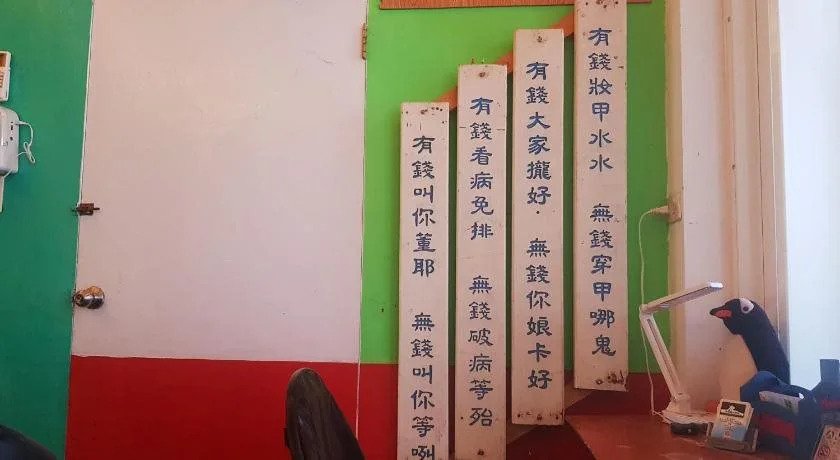 有錢妝甲水水 無錢穿甲哪鬼
有錢大家攏好． 無錢你娘卡好
有錢看病免排 無錢破病等殆
有錢叫你董耶 無錢叫你等咧